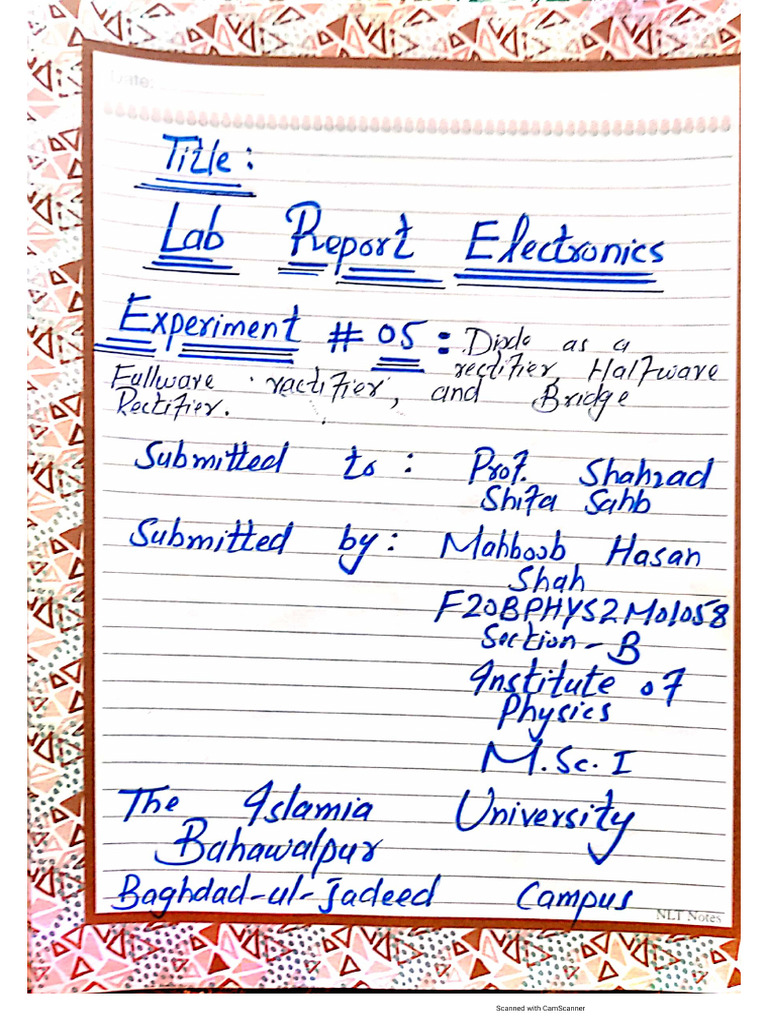 Date:
Title:
Lab Report Electronics
Experiment # 05: Diode as a
rectifier, Halfwave
Fullwave rectifier, and Bridge
Rectifier.
Submitted to: Prof. Shahzad
Shifa Sahb
Submitted by: Mahboob Hasan
Shah
F20BPHYS2M01058
Section-B
Institute of
Physics
M.Sc. I
The Islamia University
Bahawalpur
Baghdad-ul-Jadeed Campus
NLT Notes
Scanned with CamScanner